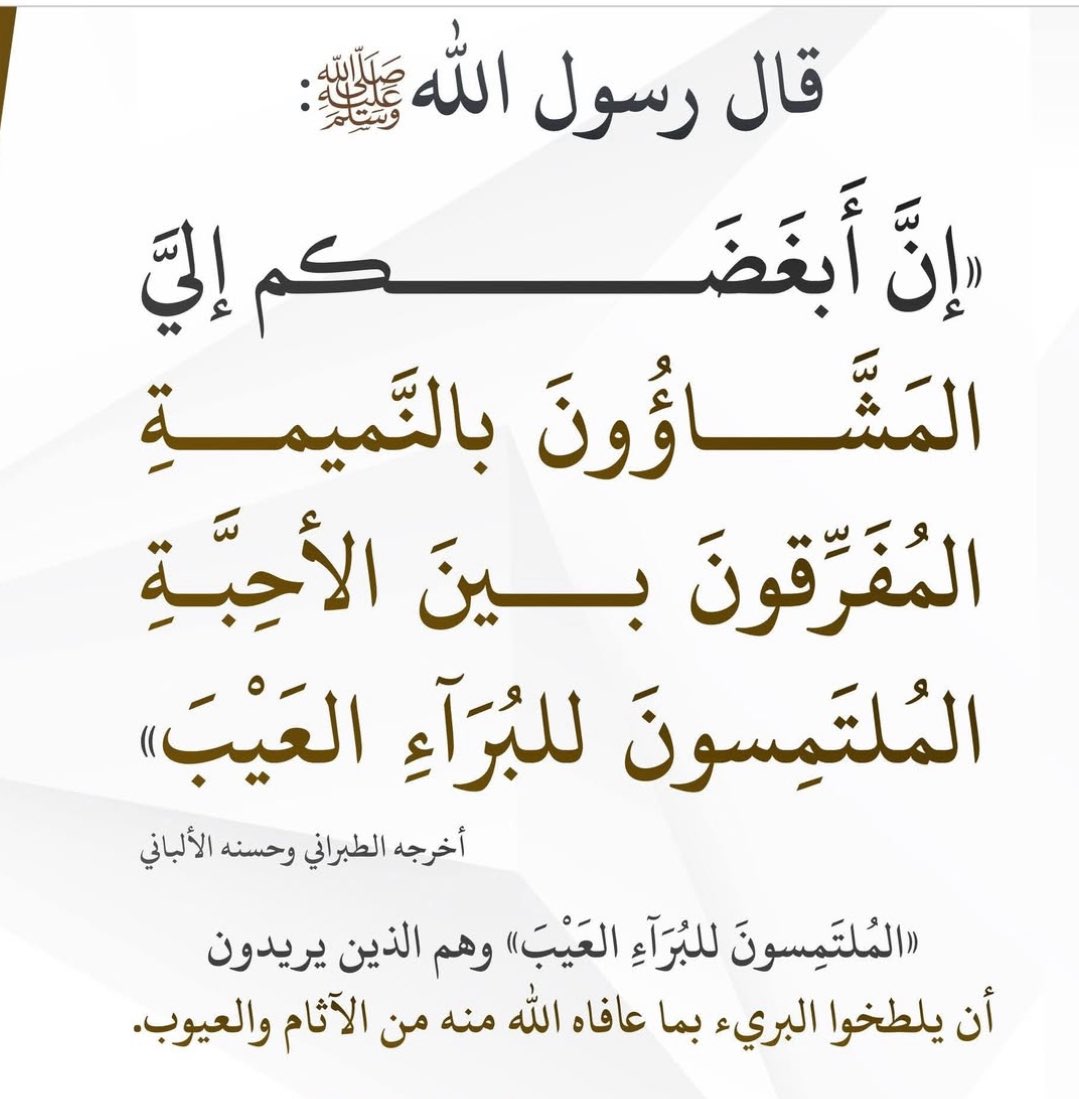 قال رسول الله ﷺ:
«إنَّ أَبغَضَكم إليَّ
المَشَّاؤُونَ بالنَّميمةِ
المُفَرِّقونَ بينَ الأحِبَّةِ
المُلتَمِسونَ للبُرَآءِ العَيْبَ»
أخرجه الطبراني وحسنه الألباني
«المُلتَمِسونَ للبُرَآءِ العَيْبَ» وهم الذين يريدون
أن يلطخوا البريء بما عافاه الله منه من الآثام والعيوب.